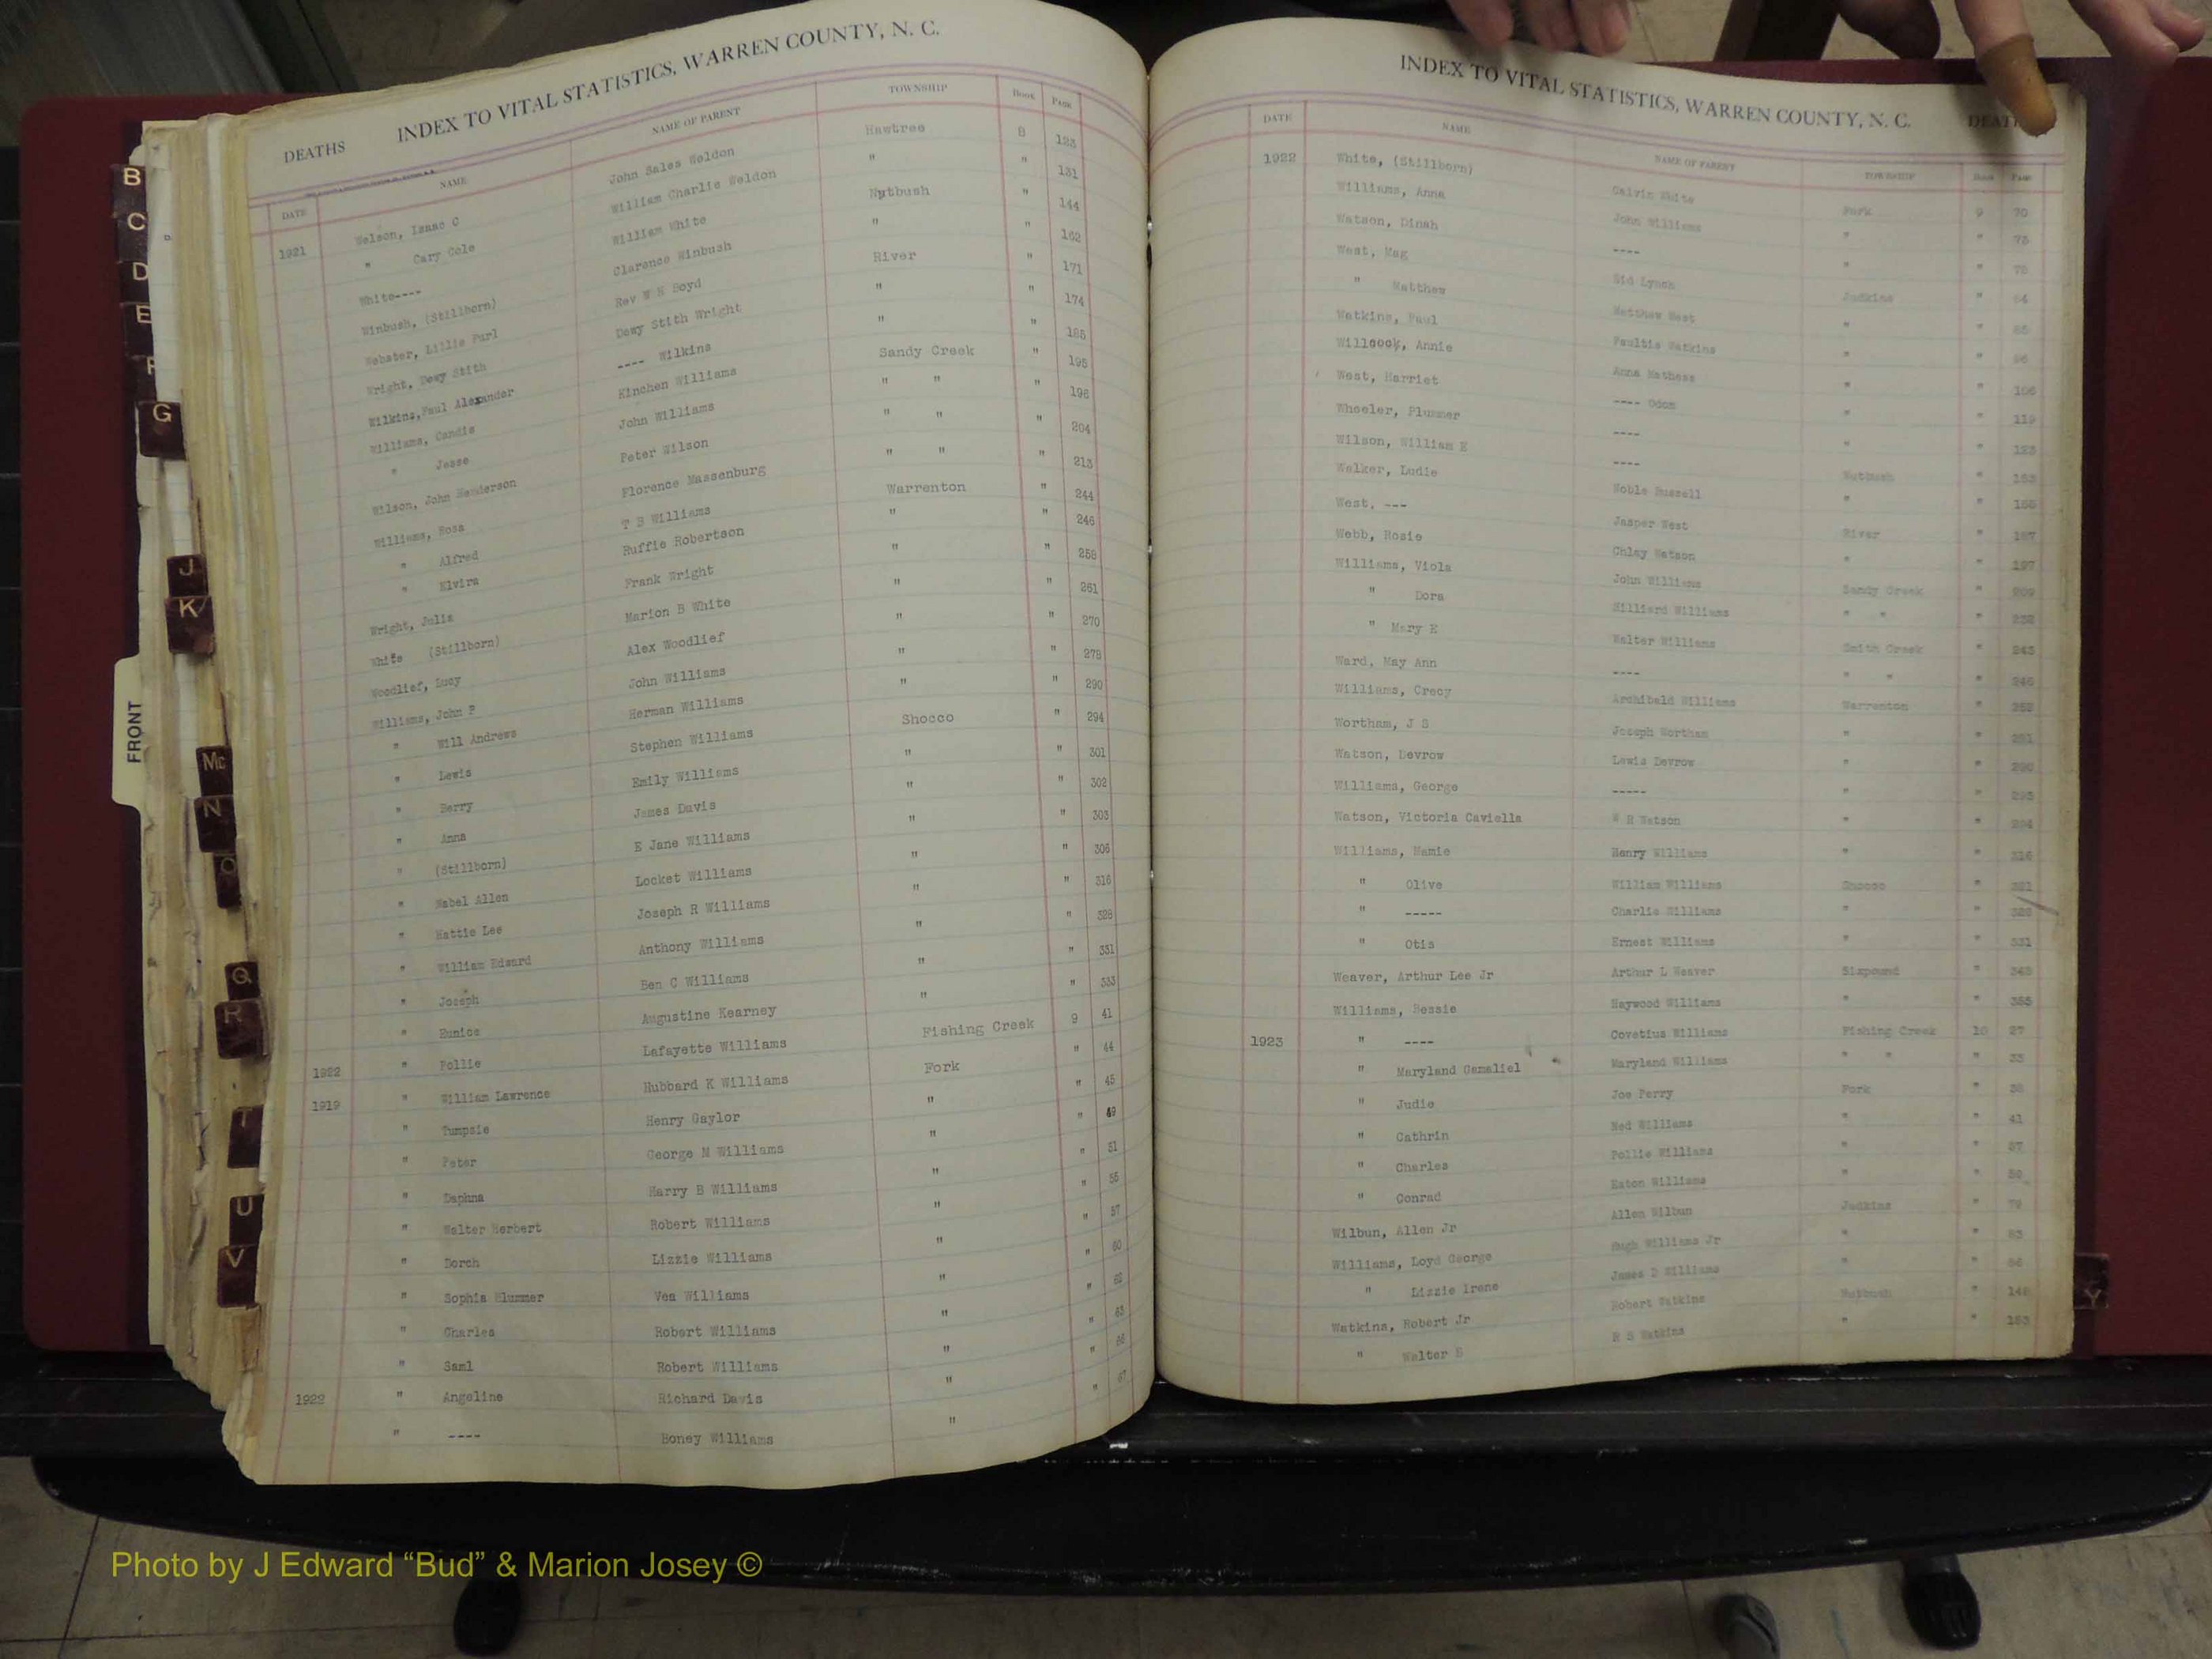 DEATHS INDEX TO VITAL STATISTICS, WARREN COUNTY, N. C.
DATE NAME NAME OF PARENT TOWNSHIP BOOK PAGE
1921 Welson, Isaac C John Sales Weldon Hawtree 8 123
" Cary Cole William Charlie Weldon " " 131
White---- William White Nutbush " 144
Winbush, (Stillborn) Clarence Winbush " " 162
Webster, Lillie Purl Rev M H Boyd River " 171
Wright, Dewy Stith Dewy Stith Wright " " 174
Wilkins, Paul Alexander ---- Wilkins " " 185
Williams, Candis Kinchen Williams Sandy Creek " 195
" Jesse John Williams " " " 198
Wilson, John Henderson Peter Wilson " " " 204
Williams, Rosa Florence Massenburg " " " 213
" Alfred T B Williams Warrenton " 244
" Elvira Ruffie Robertson " " 246
Wright, Julia Frank Wright " " 258
White (Stillborn) Marion B White " " 261
Woodlief, Lucy Alex Woodlief " " 270
Williams, John P John Williams " " 278
" Will Andrews Herman Williams " " 290
" Lewis Stephen Williams Shocco " 294
" Berry Emily Williams " " 301
" Anna James Davis " " 302
" (Stillborn) E Jane Williams " " 303
" Mabel Allen Locket Williams " " 306
" Hattie Lee Joseph R Williams " " 316
" William Edward Anthony Williams " " 328
" Joseph Ben C Williams " " 331
" Eunice Augustine Kearney " " 333
1922 " Pollie Lafayette Williams Fishing Creek 9 41
1919 " William Lawrence Hubbard K Williams Fork " 44
" Tumpsie Henry Gaylor " " 45
" Peter George M Williams " " 49
" Daphna Harry B Williams " " 51
" Walter Herbert Robert Williams " " 55
" Dorch Lizzie Williams " " 57
" Sophia Plummer Vea Williams " " 60
" Charles Robert Williams " " 62
" Saml Robert Williams " " 63
1922 " Angeline Richard Davis " " 66
" ---- Boney Williams " " 67
INDEX TO VITAL STATISTICS, WARREN COUNTY, N. C. DEAT
DATE NAME NAME OF PARENT TOWNSHIP Book Page
1922 White, (Stillborn) Calvin White Fork 9 70
Williams, Anna John Williams " " 75
Watson, Dinah ---- " " 78
West, Mag Sid Lynch Judkins " 84
" Matthew Matthew West " " 85
Watkins, Paul Faultis Watkins " " 96
Willcock, Annie Anna Mathess " " 106
West, Harriet ---- Odom " " 119
Wheeler, Plummer ---- " " 123
Wilson, William E ---- Nutbush " 153
Walker, Ludie Noble Russell " " 155
West, --- Jasper West River " 187
Webb, Rosie Chlay Watson " " 197
Williams, Viola John Williams Sandy Creek " 209
" Dora Hilliard Williams " " " 232
" Mary E Walter Williams Smith Creek " 243
Ward, May Ann ---- " " " 246
Williams, Crecy Archibald Williams Warrenton "
Wortham, J S Joseph Wortham " " 281
Watson, Devrow Lewis Devrow " " 290
Williams, George ----- " " 293
Watson, Victoria Caviella W R Watson " " 294
Williams, Mamie Henry Williams " " 316
" Olive William Williams Shocco " 321
" ----- Charlie Williams " "
" Otis Ernest Williams " " 331
Weaver, Arthur Lee Jr Arthur L Weaver Sixpound "
Williams, Bessie Haywood Williams " " 355
1923 " ---- Covetius Williams Fishing Creek 10 27
" Maryland Gamaliel Maryland Williams " " " 33
" Judie Joe Perry Fork " 38
" Cathrin Ned Williams " " 41
" Charles Pollie Williams " " 57
" Conrad Eaton Williams " " 59
Wilbun, Allen Jr Allen Wilbun Judkins " 79
Williams, Loyd George Hugh Williams Jr " " 83
" Lizzie Irene James D Williams " "
Watkins, Robert Jr Robert Watkins Nutbush " 148
" Walter B R S Watkins " " 153
B
C
D
E
F
G
J
K
FRONT
Mc
N
O
Q
R
T
U
V
Y
Photo by J Edward “Bud” & Marion Josey ©